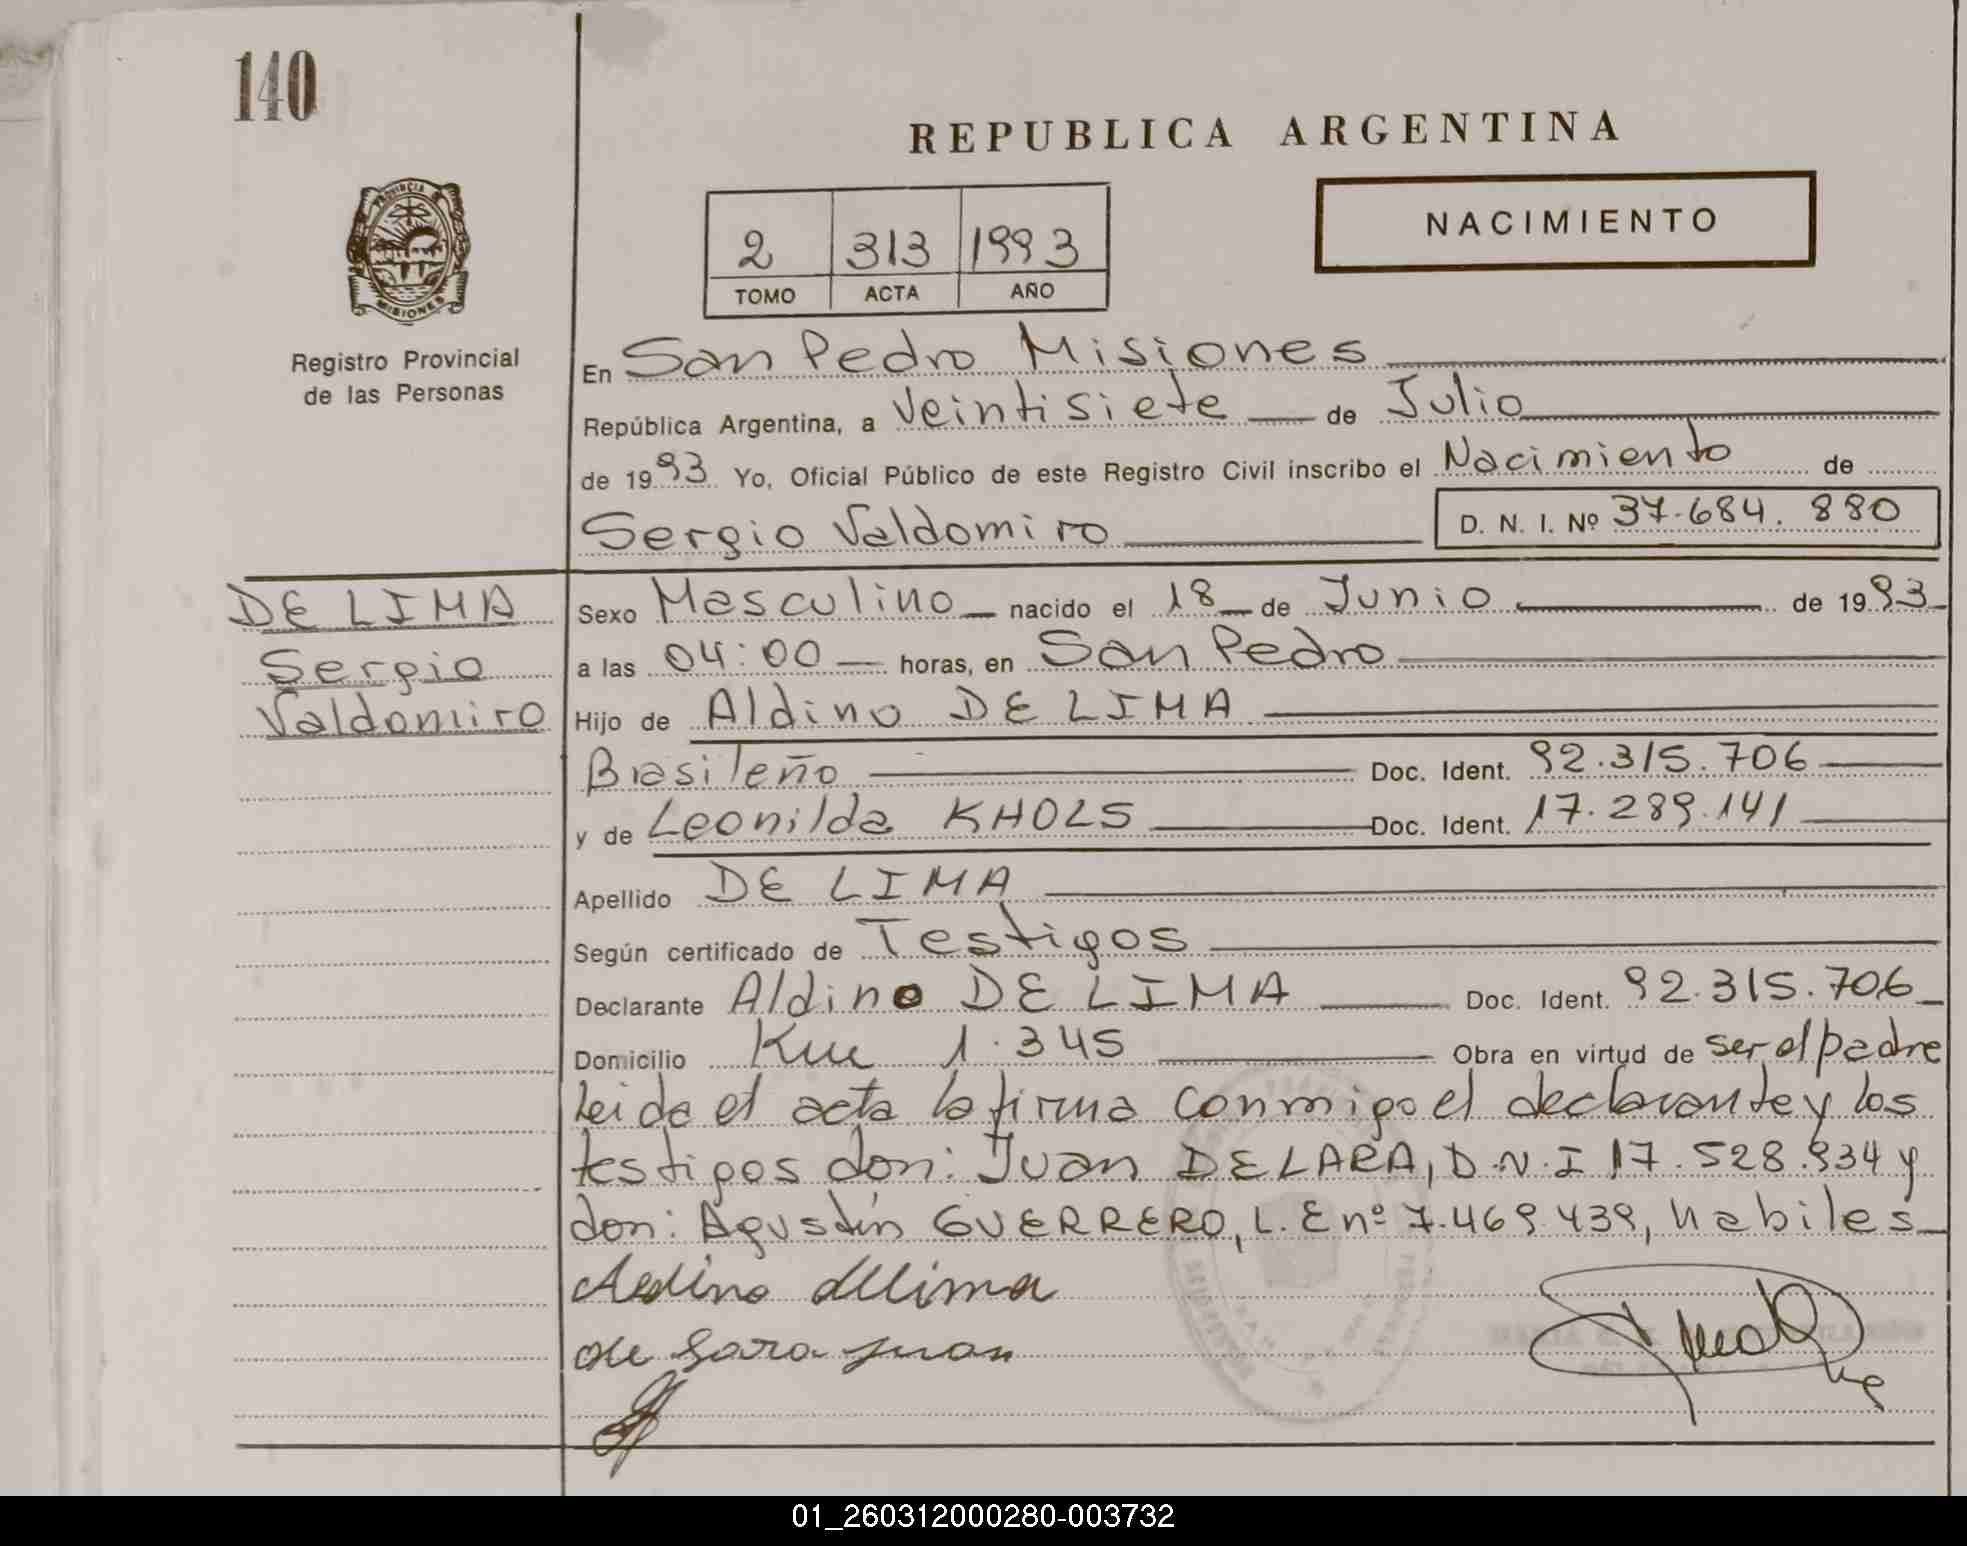 140
REPUBLICA ARGENTINA
NACIMIENTO
2 313 1993
TOMO ACTA AÑO
PROVINCIA DE
MISIONES
Registro Provincial
de las Personas
En San Pedro Misiones
República Argentina, a Veintisiete de Julio
de 1993 Yo, Oficial Público de este Registro Civil inscribo el Nacimiento de
Sergio Valdomiro D. N. I. Nº 37.684.880
DE LIMA
Sergio
Valdomiro
Sexo Masculino nacido el 18 de Junio de 1993
a las 04:00 horas, en San Pedro
Hijo de Aldino DE LIMA
Brasileño Doc. Ident. 92.315.706
y de Leonilda KHOLS Doc. Ident. 17.289.141
Apellido DE LIMA
Según certificado de Testigos
Declarante Aldino DE LIMA Doc. Ident. 92.315.706
Domicilio Km 1.345 Obra en virtud de ser el padre
Leida el acta la firma conmigo el declarante y los
testigos don: Juan DE LARA, D.N.I 17.528.934 y
don: Agustín GUERRERO, L.E nº 7.469.439, habiles
Aldino delima
de Lara Juan
01_260312000280-003732